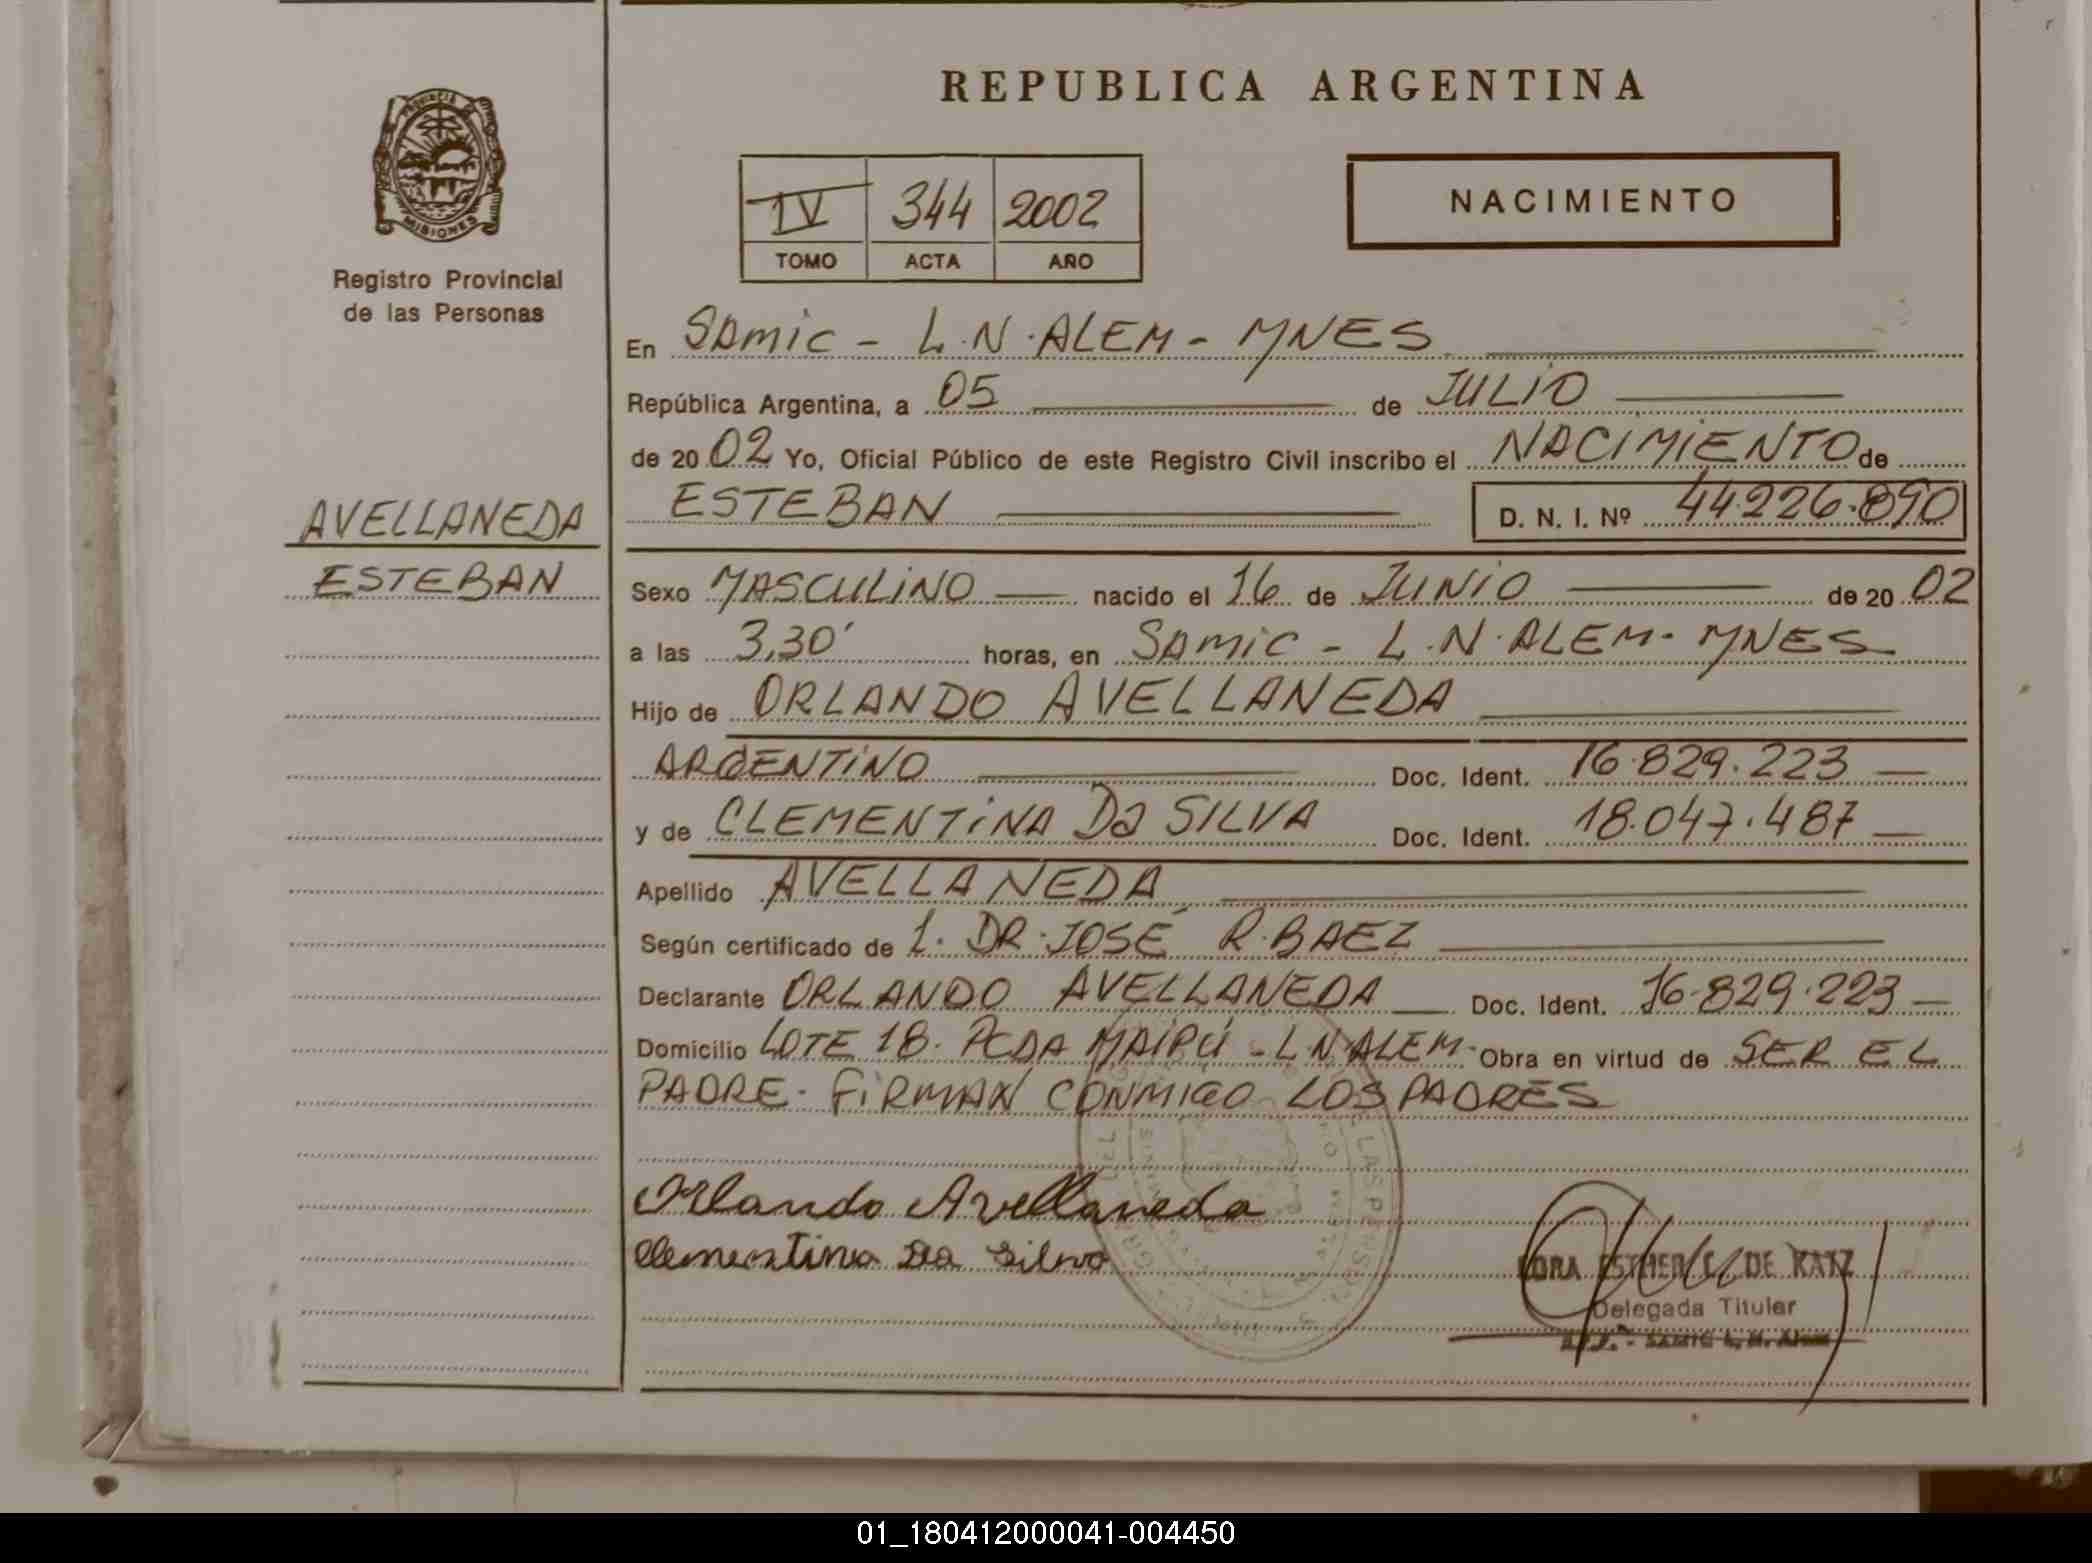 REPUBLICA ARGENTINA
PROVINCIA
MISIONES
Registro Provincial
de las Personas
IV 344 2002
TOMO ACTA AÑO
NACIMIENTO
En SAMIC - L.N.ALEM - MNES
República Argentina, a 05 de JULIO
de 2002 Yo, Oficial Público de este Registro Civil inscribo el NACIMIENTO de
ESTEBAN D. N. I. Nº 44.226.890
AVELLANEDA
ESTEBAN
Sexo MASCULINO nacido el 16 de JUNIO de 2002
a las 3,30' horas, en SAMIC - L.N.ALEM - MNES
Hijo de ORLANDO AVELLANEDA
ARGENTINO Doc. Ident. 16.829.223
y de CLEMENTINA Da SILVA Doc. Ident. 18.047.487
Apellido AVELLANEDA
Según certificado de 1. DR. JOSÉ R. BAEZ
Declarante ORLANDO AVELLANEDA Doc. Ident. 16.829.223
Domicilio LOTE 18. PCDA MAIPÚ - L.N.ALEM. Obra en virtud de SER EL
PADRE. FIRMAN CONMIGO LOS PADRES
Orlando Avellaneda
Clementina Da Silva
ESTHER DE KATZ
Delegada Titular
SAMIC L. N. Alem
01_180412000041-004450